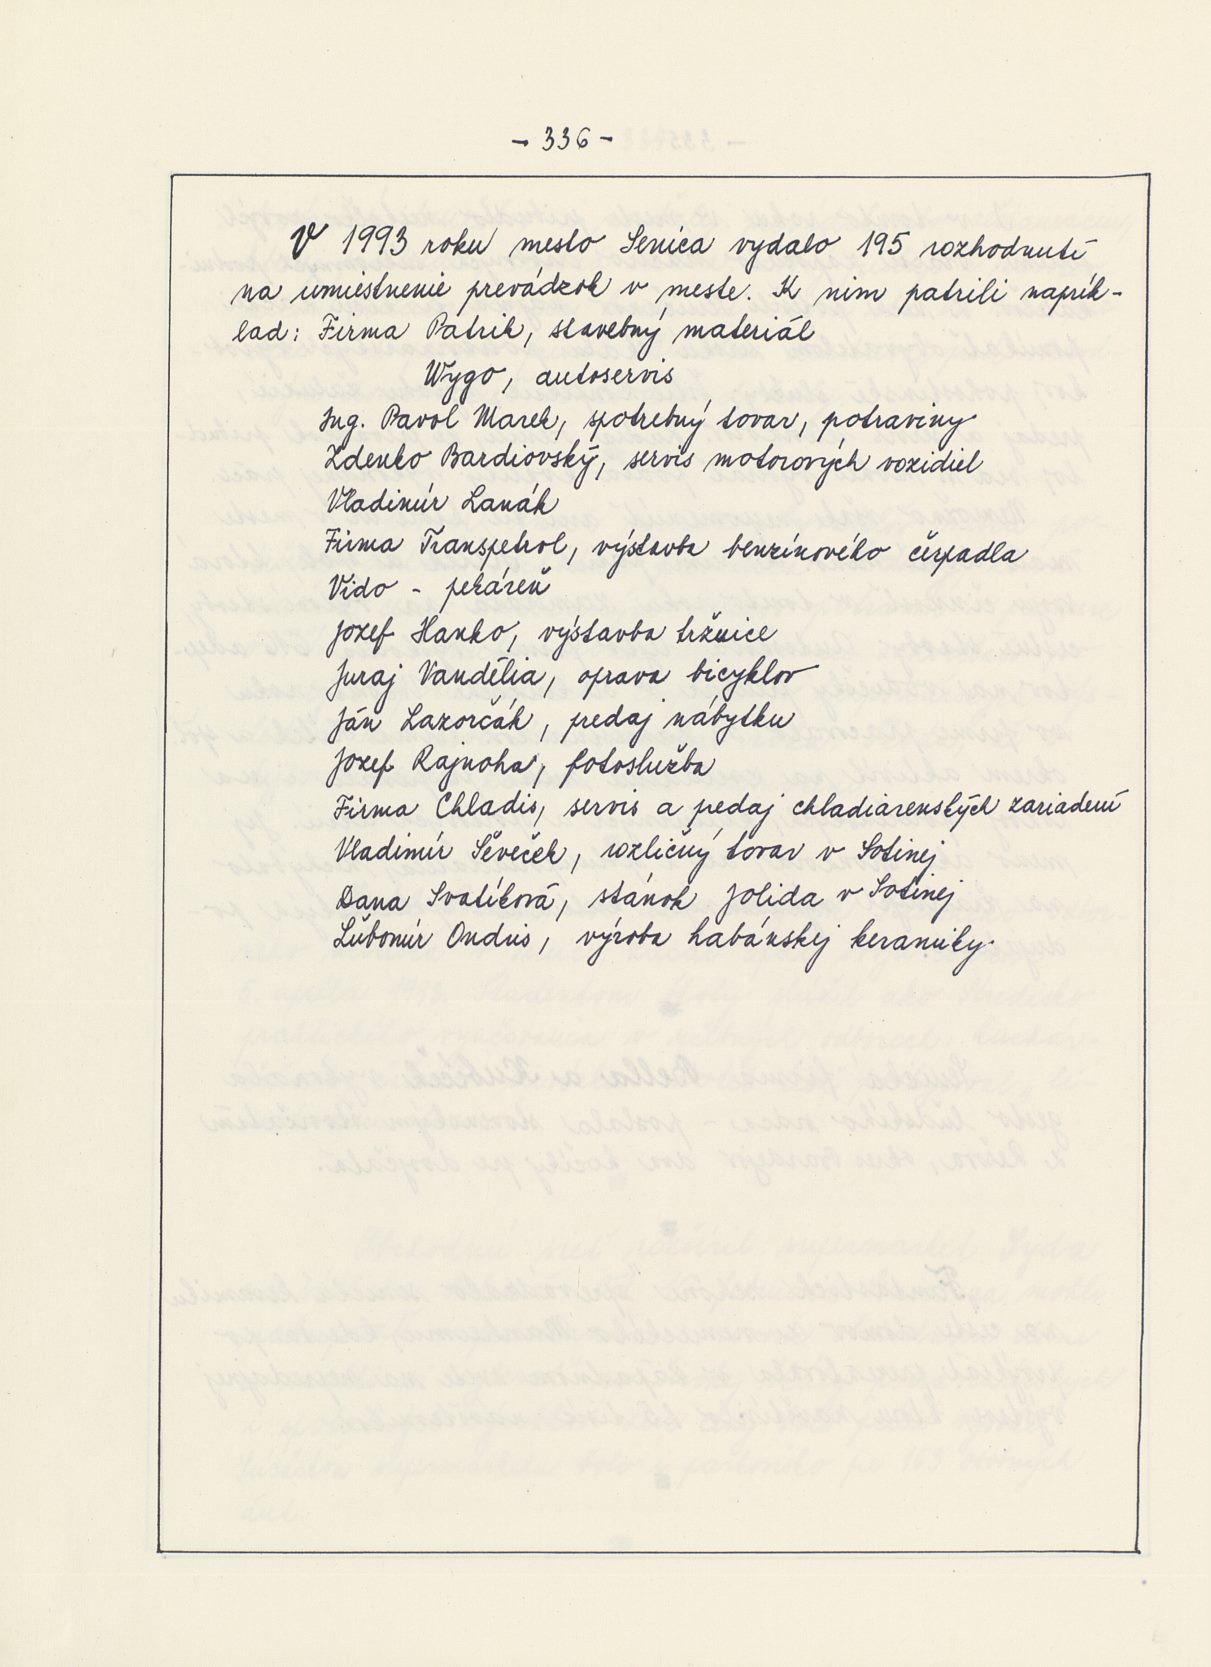 - 336 -
V 1993 roku mesto Senica vydalo 195 rozhodnutí
na umiestnenie prevádzok v meste. K nim patrili naprík-
lad: Firma Patrik, stavebný materiál
Wygo, autoservis
Ing. Pavol Marek, spotrebný tovar, potraviny
Zdenko Bardiovský, servis motorových vozidiel
Vladimír Lanák
Firma Transpetrol, výstavba benzínového čerpadla
Vido - pekáreň
Jozef Hanko, výstavba tržnice
Juraj Vandélia, oprava bicyklov
Ján Lazorčák, predaj nábytku
Jozef Rajnoha, fotoslužba
Firma Chladis, servis a predaj chladiarenských zariadení
Vladimír Ševeček, rozličný tovar v Sotinej
Dana Svatíková, stánok Jolida v Sotinej
Ľubomír Ondris, výroba habánskej keramiky.